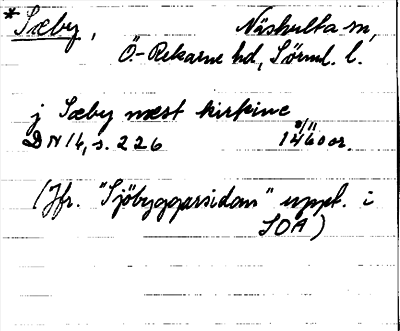 *Sæby, Näshulta sn,
Ö.-Rekarne hd, Sörml. l.
j Sæby næst kirkine
DN 16, s. 226 3/11 1460 or.
(Jfr. "Sjöbyggarsidan" uppt. i
SOA)